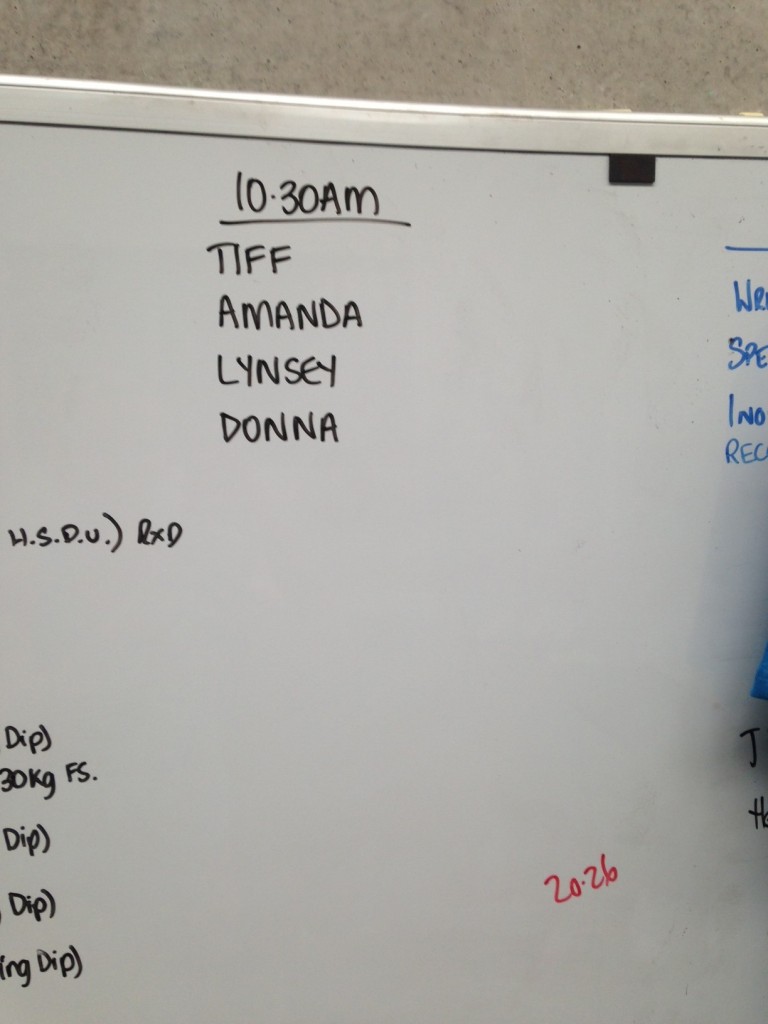 10.30AM
TIFF
AMANDA
LYNSEY
DONNA
H.S.D.U.) RXD
Dip)
30Kg FS.
Dip)
Dip)
ing Dip)
20.26
WRI
SPE
INO
REC
J
Ho